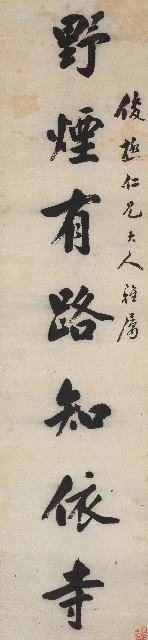 俊趣仁兄大人雅属
野煙有路知依寺